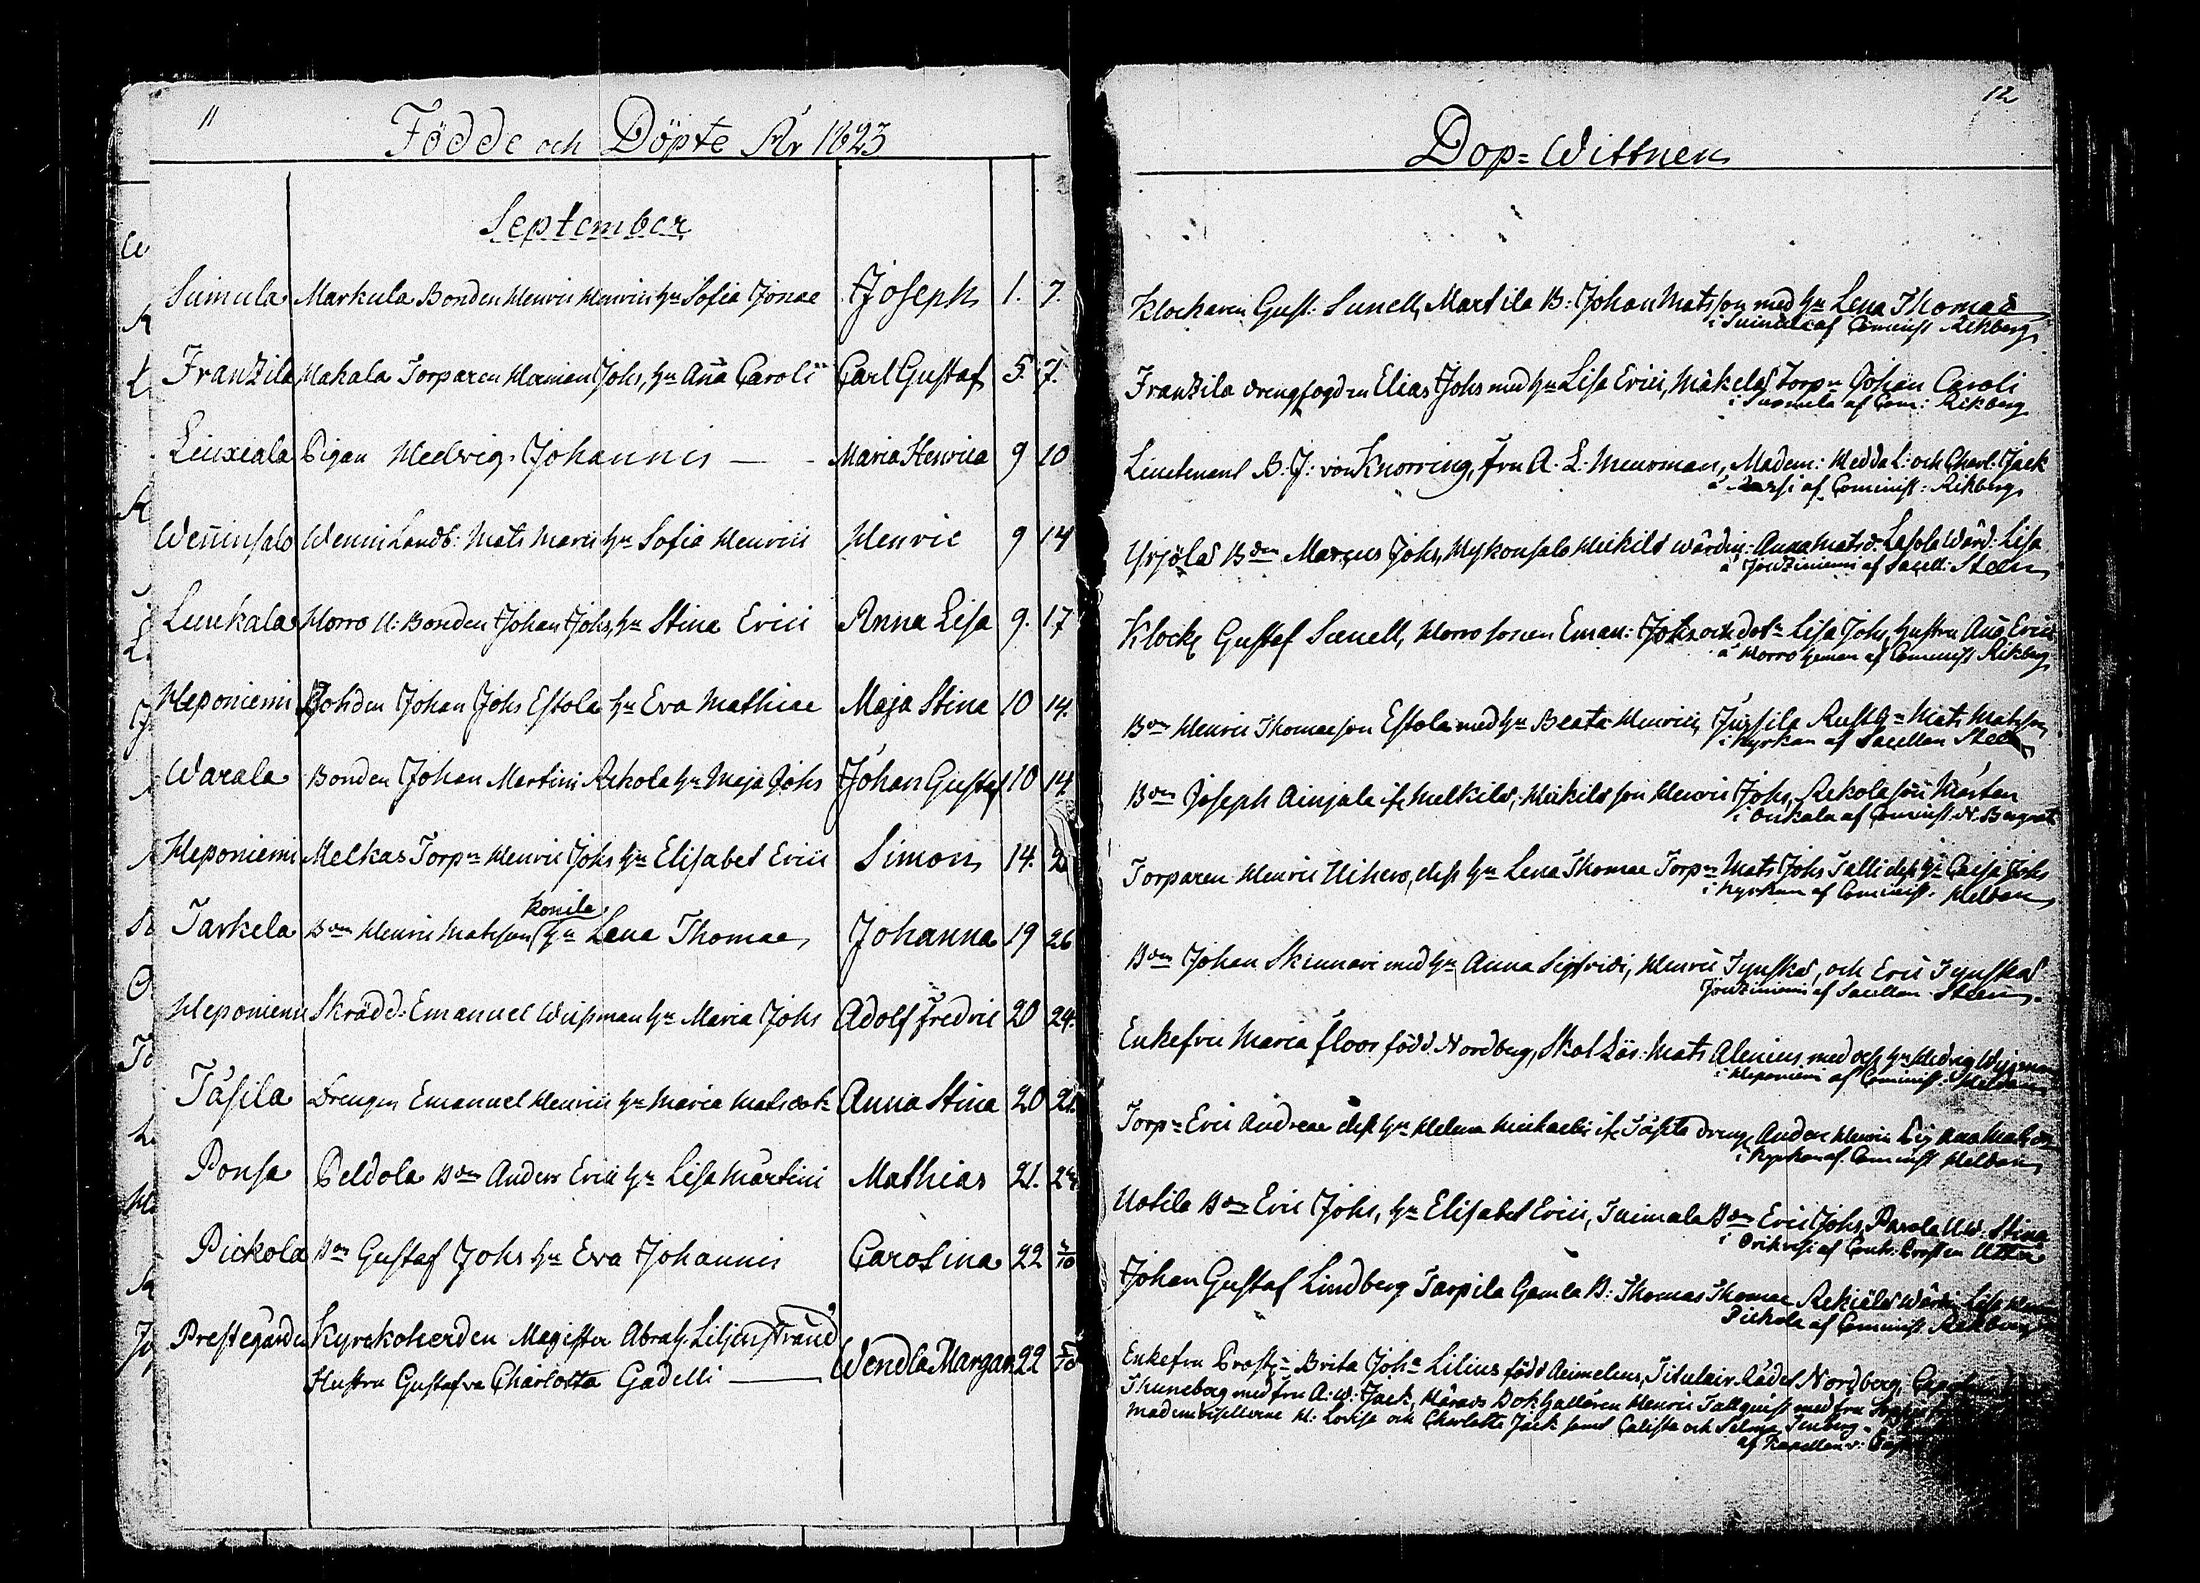 11
Födde och Döpte År 1823
September
Suinula Markula Bonden Henric Henrici hu Sofia Jonae Joseph 1. 7.
Frantzila Makala Torparen Herman Johs, hu Aña Caroli Carl Gustaf 5. 7.
Liuxiala Pigan Hedvig Johannis — Maria Henrica 9 10
Weñinsalo Wenni Landb: Mats Marci hu Sofia Henrici Henric 9 14
Liukala Horro U: Bonden Johan Johs, hu Stina Erici Anna Lisa 9. 17
Heponiemi Bonden Johan Johs Eskola hu Eva Mathiae Maja Stina 10 14.
Warala Bonden Johan Martini Rekola hu Maja Johs Johan Gustaf 10 14
Heponiemi Melkas Torpn Henric Johs hu Elisabet Erici Simon 14. 2
Konila
Tarkela Bdn Henric Matsson hu Lena Thomae Johanna 19 26
Heponiemi Skrädd. Emanuel Wissman hu Maria Johs Adolf Fredric 20 24.
Täsila Drengen Emanuel Henrici hu Maria Matsdotr Anna Stina 20 21.
Ponsa Peldola Bdn Anders Erici hu Lisa Martini Mathias 21. 24
Pickola Bdn Gustaf Johs hu Eva Johannis Carolina 22 5/10
Prestegården Kyrckoherden Magister Abrah. Liljenstrand
Hustru Gustafva Charlotta Gadelli — Wendla Margar 22 5/10
12
Dop=Wittnen
Klockaren Gust: Sunell, Martila B: Johan Matsson med hu Lena Thomae
i Suinula af Comminist Rikberg
Frantzila drengfogden Elias Johs med hu Lisa Erici, Mäkelä Torpn Johan Caroli
i Suomela af Com: Rikberg
Lieutenant B. J: von Knorring, fru A. L: Meurman, Madem: Hedda L: och Charl: Jack
af Comminist: Rikberg
Yrjölä Bdn Marcus Johs, Mykonsalo Mickilä värdin: Anna Matsd: Lasola Wärd: Lisa
a Jouziniemi af Sacell: Steen
Klock Gustaf Sunell, Horro sonen Eman: Johs och dotr Lisa Johs, hustru Aña Erici
a Horro heman af Comminist Rikberg
Bdn Henric Thomaesson Eskola med hu Beata Henrici, Jussila Rusth: Mats Matsson
i kyrkan af Sacellan Steen
Bdn Joseph Ainjala if. Melkilä, Mickilä son Henric Johs, Rekola son Mårten
i Onkala af Comminist N. Bergroth
Torparen Henric Uihero, dess hu Lena Thomae Torpn Mats Johs Talli dess hu Caisa Johs
i kyrkan af Comminist: Heldan
Bdn Johan Skinnari med hu Anna Sigfridi, Henric Tynskä, och Eric Tynskä
Jouziniemi af Sacellan Steen.
Enkefru Maria Floor född Nordberg, Skol Lär: Mats Alenius med dess hu Hedvig
i Heponiemi af Comminist
Torpn Eric Andreae dess hu Helena Michaelis if. Täsila dreng Anders Henric
i kyrkan af Comminist Heldan
Uotila Bdn Eric Johs, hu Elisabet Erici, Tuimala Bdn Eric Johs, Parola Stina
i af Contr: Prosten Utter
Johan Gustaf Lindberg Tarpila Gamla B: Thomas Thomae Rekiälä Wärdn Lisa
Pickola af Comminist Rikberg
Enkefru Prost Brita Johs Lilius född Aeimelaeus, Titulair Rådet Nordberg,
Thuneberg med fru A. W: Jack, Härads Bokhållaren Henric Tallquist med fru
Mademoisellerne H: Lovisa och Charlotta Jack samt Calista och Selma
af Kapellan